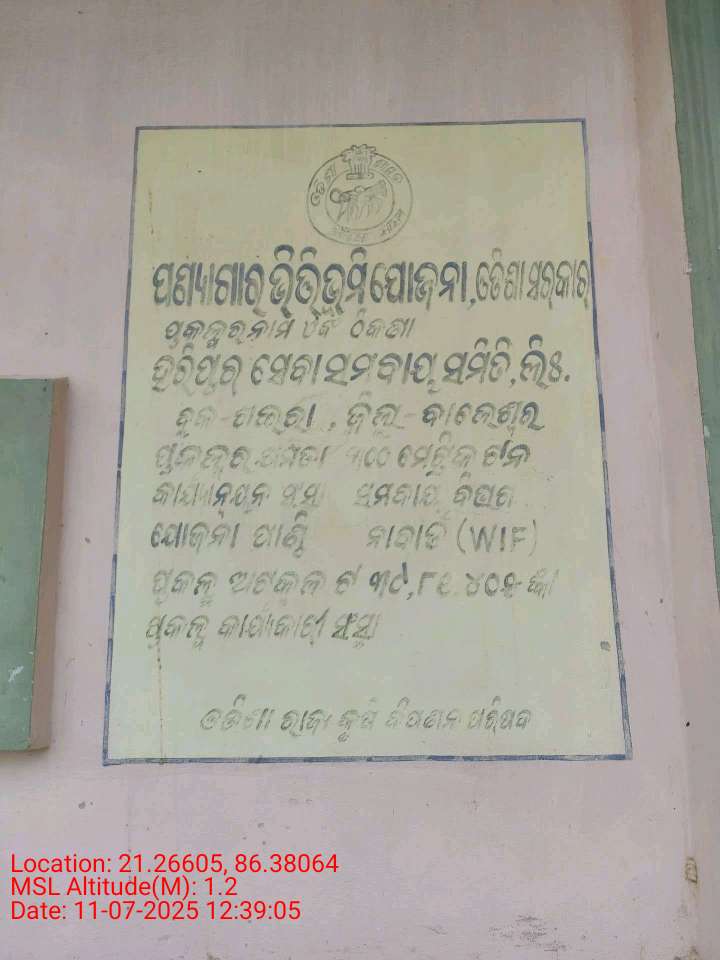 ଓଡିଶା ଶାସନ
ପଣ୍ୟାଗାର ଭିତିଭୂମି ଯୋଜନା, ଓଡିଶା ସରକାର
ପ୍ରକଳ୍ପର ନାମ ଏବଂ ଠିକଣା
ହରିପୁର ସେବା ସମବାୟ ସମିତି, ଲିଃ.
ବ୍ଲକ - , ଜିଲ୍ଲା - ବାଲେଶ୍ୱର
ପ୍ରକଳ୍ପର ୩୦୦ ମେଟ୍ରିକ ଟନ
କାର୍ଯ୍ୟାନ୍ୱୟନ ସଂସ୍ଥା ସମବାୟ ବିଭାଗ
ଯୋଜନା ପାଣ୍ଠି ନାବାର୍ଡ (WIF)
ପ୍ରକଳ୍ପ ଅଟକଳ ଟ
ପ୍ରକଳ୍ପ କାର୍ଯ୍ୟକାରୀ ସଂସ୍ଥା
ଓଡିଶା ରାଜ୍ୟ କୃଷି ବିପଣନ ପରିଷଦ
Location: 21.26605, 86.38064
MSL Altitude(M): 1.2
Date: 11-07-2025 12:39:05